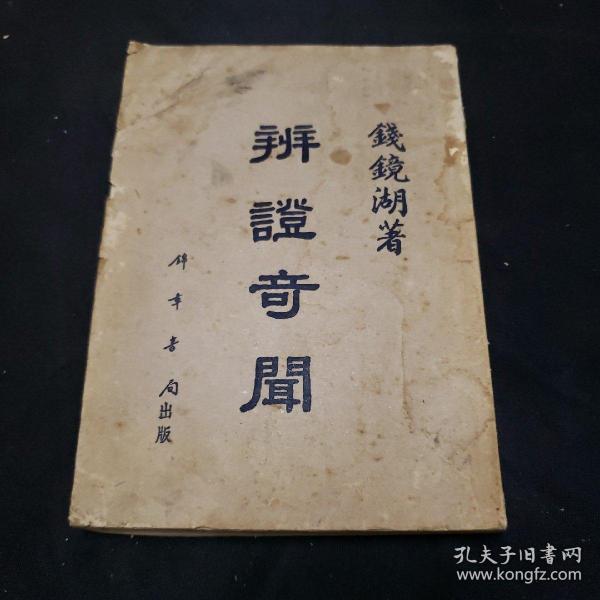 錢鏡湖著
辨證奇聞
錦章書局出版
孔夫子旧书网
www.kongfz.com